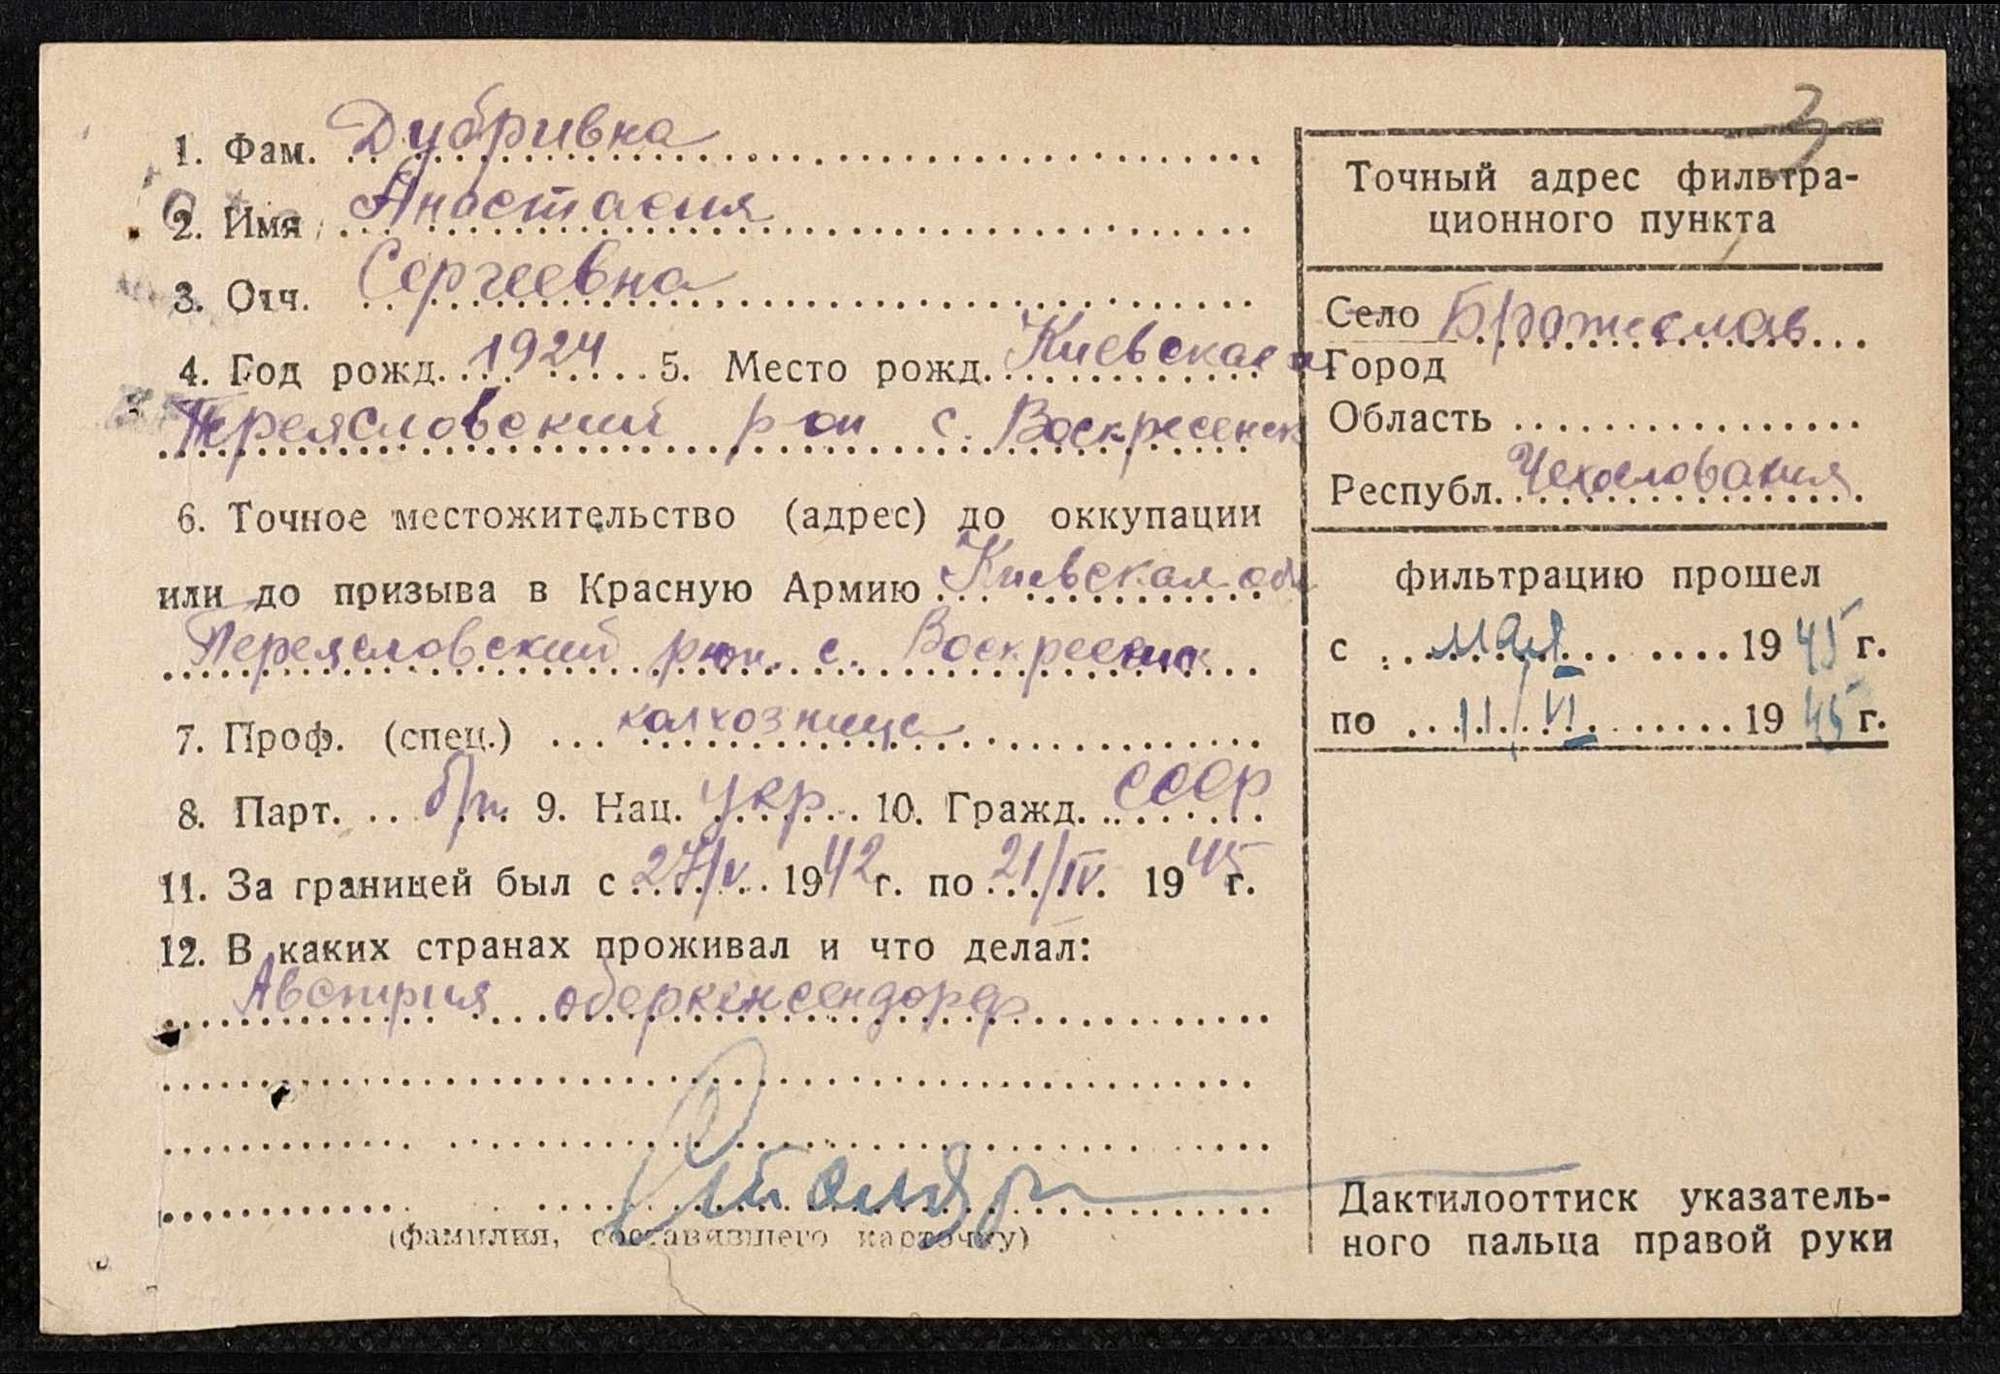 3
1. Фам. Дубривка
2. Имя Анастасия
3. Отч. Сергеевна
4. Год рожд. 1924 5. Место рожд. Киевская
Переясловский рон с. Воскресенск
6. Точное местожительство (адрес) до оккупации
или до призыва в Красную Армию Киевская обл
Переясловский рон. с. Воскресенск
7. Проф. (спец.) колхозница
8. Парт. б/п. 9. Нац. укр 10. Гражд. СССР
11. За границей был с 27/V 1942 г. по 21/IV 1945 г.
12. В каких странах проживал и что делал:
Австрия оберкенсендорф
(фамилия, составившего карточку)
Точный адрес фильтра-
ционного пункта
Село Брожеслав
Город
Область
Республ. Чехословакия
фильтрацию прошел
с мая 1945 г.
по 11/VI 1945 г.
Дактилооттиск указатель-
ного пальца правой руки